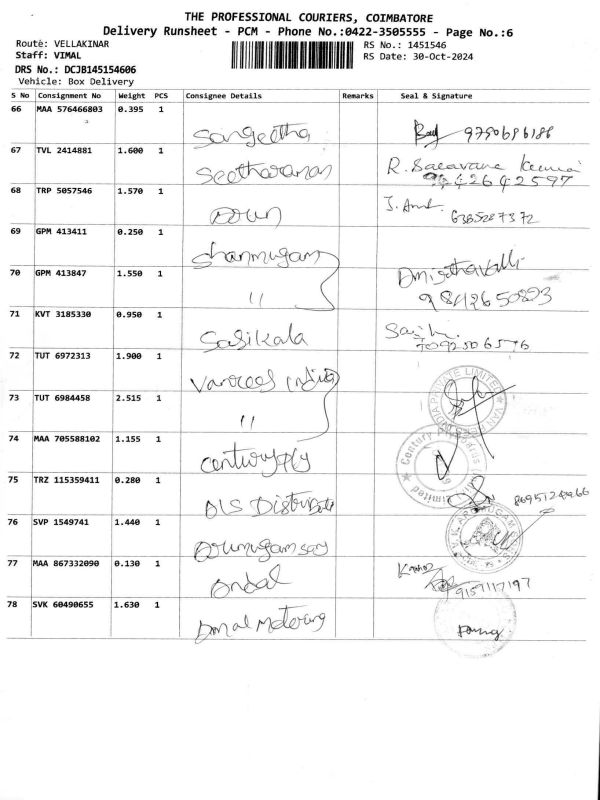 THE PROFESSIONAL COURIERS, COIMBATORE
Delivery Runsheet - PCM - Phone No.:0422-3505555 - Page No.:6
Route: VELLAKINAR
RS No.: 1451546
Staff: VIMAL
RS Date: 30-Oct-2024
DRS No.: DCJB145154606
Vehicle: Box Delivery
S No Consignment No Weight PCS Consignee Details Remarks Seal & Signature
66 MAA 576466803 0.395 1
Sangeetha 9750686186
67 TVL 2414881 1.600 1
Seetharaman R. Saravana Kumar
9442642597
68 TRP 5057546 1.570 1
Arun
69 GPM 413411 0.250 1
Shanmugam
70 GPM 413847 1.550 1
"
71 KVT 3185330 0.950 1
Sasikala
7092506576
72 TUT 6972313 1.900 1
India
73 TUT 6984458 2.515 1
"
74 MAA 705588102 1.155 1
Centuryply
75 TRZ 115359411 0.280 1
DLS
76 SVP 1549741 1.440 1
Arumugamsay
77 MAA 867332090 0.130 1
Andal
9157117197
78 SVK 60490655 1.630 1